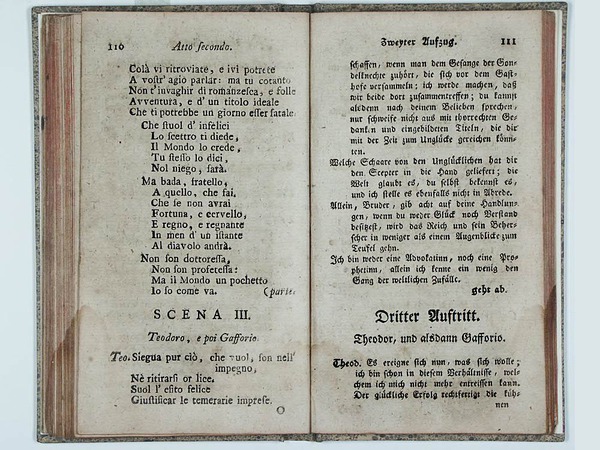 110 Atto secondo.
Colà vi ritroviate, e ivi potrete
A vostr' agio parlar: ma tu cotanto
Non t'invaghir di romanzesca, e folle
Avventura, e d' un titolo ideale
Che ti potrebbe un giorno esser fatale.
Che stuol d' infelici
Lo scettro ti diede,
Il Mondo lo crede,
Tu stesso lo dici,
Nol niego, sarà.
Ma bada, fratello,
A quello, che fai,
Che se non avrai
Fortuna, e cervello,
E regno, e regnante
In men d' un istante
Al diavolo andrà.
Non son dottoressa,
Non son profetessa:
Ma il Mondo un pochetto
Io so come va. (parte.
SCENA III.
Teodoro, e poi Gafforio.
Teo. Siegua pur ciò, che vuol, son nell'
impegno,
Nè ritirarsi or lice.
Suol l' esito felice
Giustificar le temerarie imprese.
O
Zweyter Aufzug. 111
schaffen, wenn man dem Gesange der Gon-
delknechte zuhört, die sich vor dem Gast-
hofe versammeln; ich werde machen, daß
wir beide dort zusammentreffen; du kannst
alsdenn nach deinem Belieben sprechen,
nur schweife nicht aus mit thorrechten Ge-
danken und eingebildeten Titeln, die dir
mit der Zeit zum Unglücke gereichen könn-
ten.
Welche Schaare von den Unglücklichen hat dir
den Scepter in die Hand geliefert; die
Welt glaubt es, du selbst bekennst es,
und ich stelle es ebenfalls nicht in Abrede.
Allein, Bruder, gib acht auf deine Handlun-
gen, wenn du weder Glück noch Verstand
besitzest, wird das Reich und sein Beher-
scher in weniger als einem Augenblicke zum
Teufel gehn.
Ich bin weder eine Advokatinn, noch eine Pro-
phetinn, allein ich kenne ein wenig den
Gang der weltlichen Zufälle.
geht ab.
Dritter Auftritt.
Theodor, und alsdann Gafforio.
Theod. Es ereigne sich nun, was sich wolle;
ich bin schon in diesem Verhältnisse, wel-
chem ich mich nicht mehr entreissen kann.
Der glückliche Erfolg rechtfertigt die küh-
nen